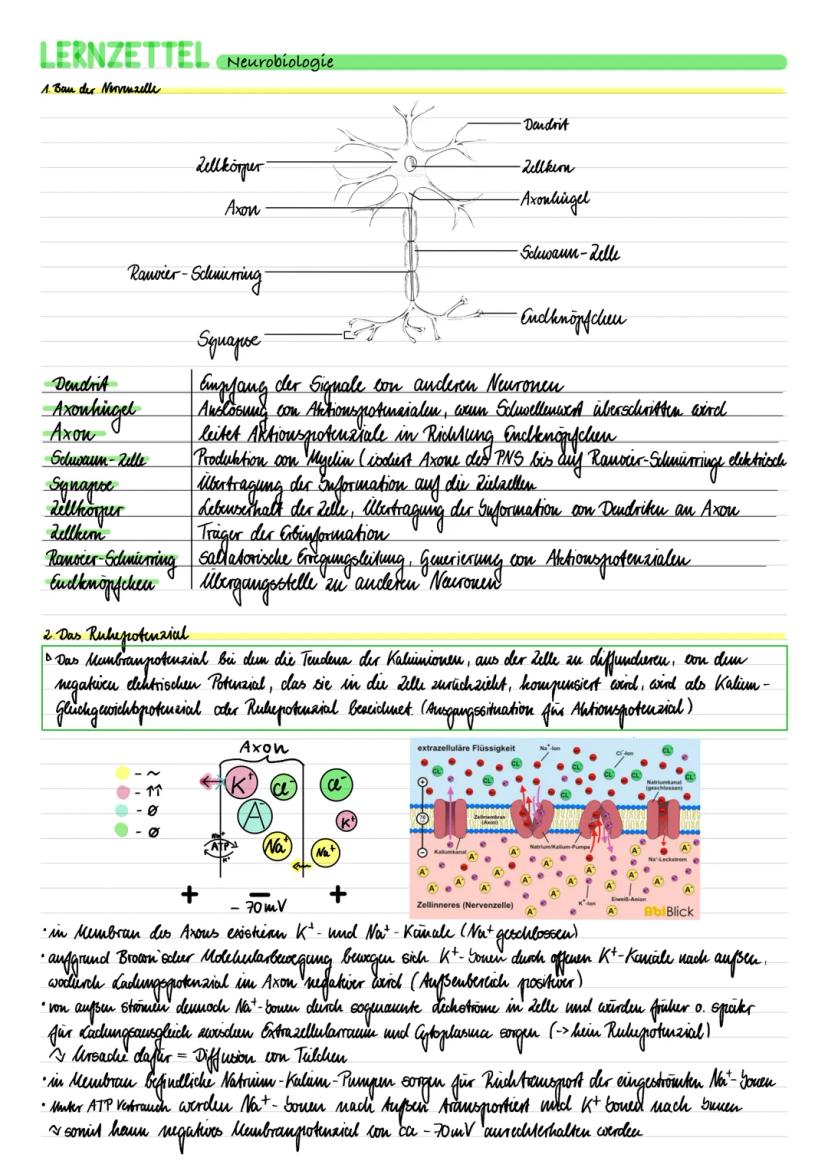 LERNZETTEL Neurobiologie
1. Bau der Nervenzelle
Dendrit
Zellkörper
Zellkern
Axonhügel
Axon
Schwann-Zelle
Ranvier-Schnürring
Endknöpfchen
Synapse
Dendrit Empfang der Signale von anderen Neuronen
Axonhügel Auslösung von Aktionspotenzialen, wenn Schwellenwert überschritten wird
Axon leitet Aktionspotenziale in Richtung Endknöpfchen
Schwann-Zelle Produktion von Myelin (isoliert Axone des PNS bis auf Ranvier-Schnürringe elektrisch
Synapse Übertragung der Information auf die Zielzellen
Zellkörper Lebenserhalt der Zelle, Übertragung der Information von Dendriten an Axon
Zellkern Träger der Erbinformation
Ranvier-Schnürring saltatorische Erregungsleitung, Generierung von Aktionspotenzialen
Endknöpfchen Übergangsstelle zu anderen Neuronen
2. Das Ruhepotenzial
Das Membranpotenzial bei dem die Tendenz der Kaliumionen, aus der Zelle zu diffundieren, von dem
negativen elektrischen Potenzial, das sie in die Zelle zurückzieht, kompensiert wird, wird als Kalium-
Gleichgewichtspotenzial oder Ruhepotenzial bezeichnet. (Ausgangssituation für Aktionspotenzial)
Axon
- ~
- ↑↑
- Ø
- Ø
K⁺ Cl⁻ Cl⁻
A⁻ K⁺
Na⁺ ATP K⁺
Na⁺ Na⁺
+ − +
- 70mV
extrazelluläre Flüssigkeit
Na⁺-Ion
Cl⁻-Ion
Natriumkanal
(geschlossen)
Zellmembran
(Axon)
70
Kaliumkanal
Natrium/Kalium-Pumpe
Na⁺-Leckstrom
K⁺-Ion
Eiweiß-Anion
Zellinneres (Nervenzelle)
AbiBlick
• in Membran des Axons existieren K⁺- und Na⁺-Kanäle (Na⁺ geschlossen)
• aufgrund Brown'scher Molekularbewegung bewegen sich K⁺-Ionen durch offenen K⁺-Kanäle nach außen,
wodurch Ladungspotenzial im Axon negativer wird (Außenbereich positiver)
• von außen strömen dennoch Na⁺-Ionen durch sogenannte Leckströme in Zelle und würden früher o. später
für Ladungsausgleich zwischen Extrazellularraum und Cytoplasma sorgen (-> kein Ruhepotenzial)
↝ Ursache dafür = Diffusion von Teilchen
• in Membran befindliche Natrium-Kalium-Pumpen sorgen für Rücktransport der eingeströmten Na⁺-Ionen
• unter ATP Verbrauch werden Na⁺-Ionen nach Außen transportiert und K⁺ Ionen nach Innen
↝ somit kann negatives Membranpotenzial von ca -70mV aufrechterhalten werden